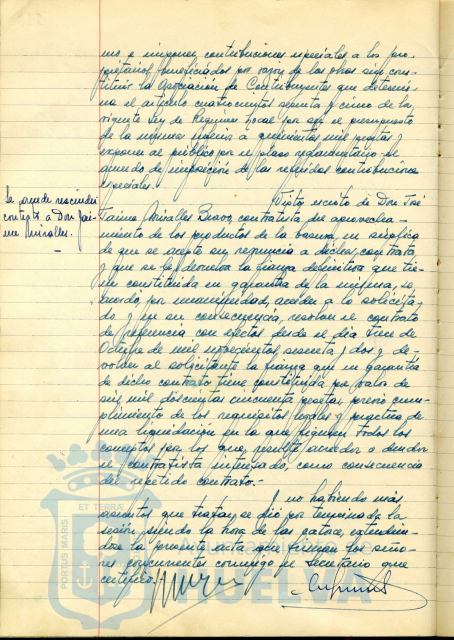 mo e imponer contribuciones especiales a los pro-
pietarios beneficiados por razón de las obras sin cons-
tituir la Asociación de Contribuyentes que determi-
na el artículo cuatrocientos setenta y cinco de la
vigente Ley de Régimen Local por ser el presupuesto
de la misma inferior a quinientas mil pesetas y
exponer al público por el plazo reglamentario el
acuerdo de imposición de las referidas contribuciones
especiales.
Se acuerda rescindir
contrato a Don Jai-
me Miralles.
Visto escrito de Don José
Jaime Miralles Bravo, contratista de aprovecha-
miento de los productos de la basura, en súplica
de que se acepte su renuncia a dicha contrata,
y que se le devuelva la fianza definitiva que tie-
ne constituida en garantía de la misma, se
acordó, por unanimidad, acceder a lo solicita-
do y en su consecuencia, resolver el contrato
de referencia con efectos desde el día trece de
Octubre de mil novecientos sesenta y dos y de-
volver al solicitante la fianza que en garantía
de dicho contrato tiene constituida por valor de
seis mil doscientas cincuenta pesetas previo cum-
plimiento de los requisitos legales y práctica de
una liquidación en la que figuren todos los
conceptos por los que resulte acreedor o deudor
el contratista interesado, como consecuencia
del repetido contrato.-
Y no habiendo más
asuntos que tratar, se dió por terminada la
sesión, siendo la hora de las catorce, extendién-
dose la presente acta que firman los seño-
res concurrentes conmigo el Secretario que
certifico.
PORTUS MARIS ET TERRAE
HUELVA